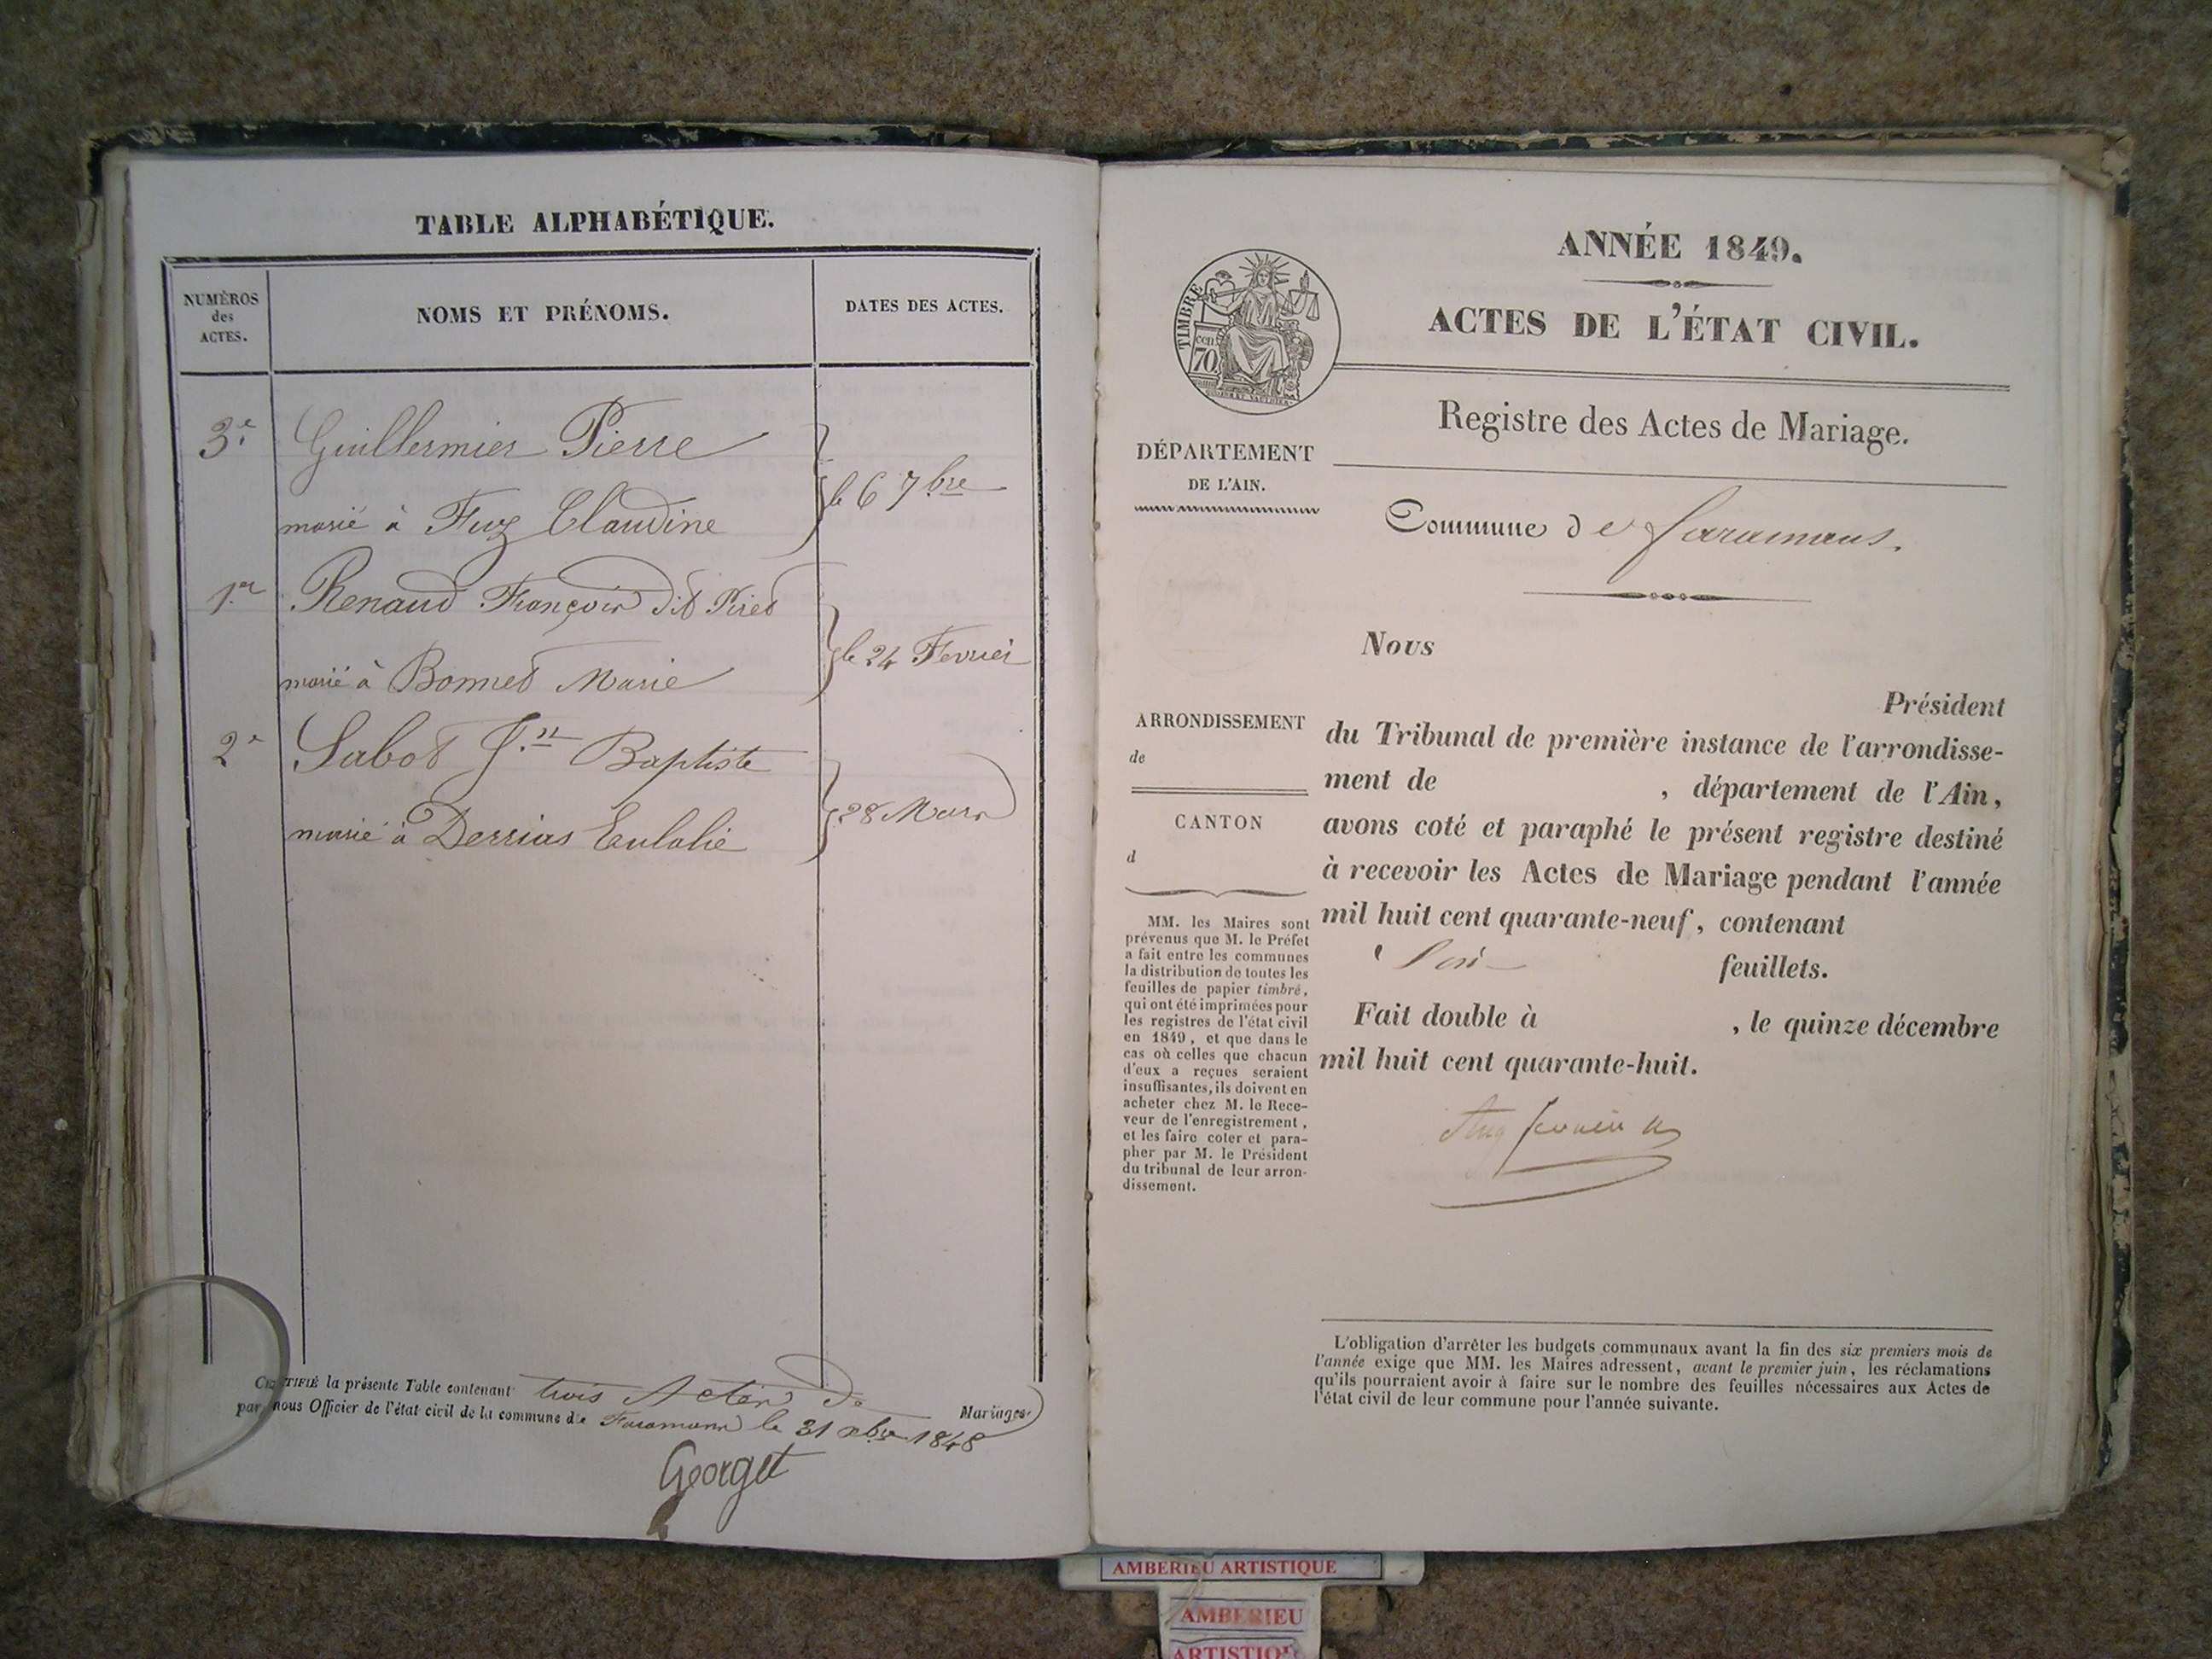 TABLE ALPHABÉTIQUE.
NUMÉROS
des
ACTES.
NOMS ET PRÉNOMS.
DATES DES ACTES.
3.e Guillermier Pierre
marié à Fuz Claudine
le 6 7bre
1.er Renaud François dit Piret
marié à Bonnet Marie
le 24 Fevrier
2e Sabot J.n Baptiste
marié à Derrias Eulalie
28 Mars
CERTIFIÉ la présente Table contenant trois Actes de Mariages
par nous Officier de l'état civil de la commune de Faramans le 31 xbre 1848
Georget
ANNÉE 1849.
ACTES DE L'ÉTAT CIVIL.
TIMBRE
cen
70
Registre des Actes de Mariage.
DÉPARTEMENT
DE L'AIN.
Commune de faramans.
Nous
Président
du Tribunal de première instance de l'arrondisse-
ment de , département de l'Ain,
avons coté et paraphé le présent registre destiné
à recevoir les Actes de Mariage pendant l'année
mil huit cent quarante-neuf, contenant
feuillets.
Fait double à , le quinze décembre
mil huit cent quarante-huit.
ARRONDISSEMENT
de
CANTON
d
MM. les Maires sont
prévenus que M. le Préfet
a fait entre les communes
la distribution de toutes les
feuilles de papier timbré,
qui ont été imprimées pour
les registres de l'état civil
en 1849, et que dans le
cas où celles que chacun
d'eux a reçues seraient
insuffisantes, ils doivent en
acheter chez M. le Rece-
veur de l'enregistrement,
et les faire coter et para-
pher par M. le Président
du tribunal de leur arron-
dissement.
L'obligation d'arrêter les budgets communaux avant la fin des six premiers mois de
l'année exige que MM. les Maires adressent, avant le premier juin, les réclamations
qu'ils pourraient avoir à faire sur le nombre des feuilles nécessaires aux Actes de
l'état civil de leur commune pour l'année suivante.
AMBERIEU ARTISTIQUE
AMBERIEU
ARTISTIQ